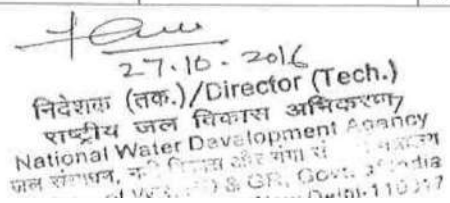 27.10.2016
निदेशक (तक.)/Director (Tech.)
राष्ट्रीय जल विकास अभिकरण
National Water Development Agency
जल संसाधन, नदी विकास और गंगा सं
& GR, Govt. of India
New Delhi-110017